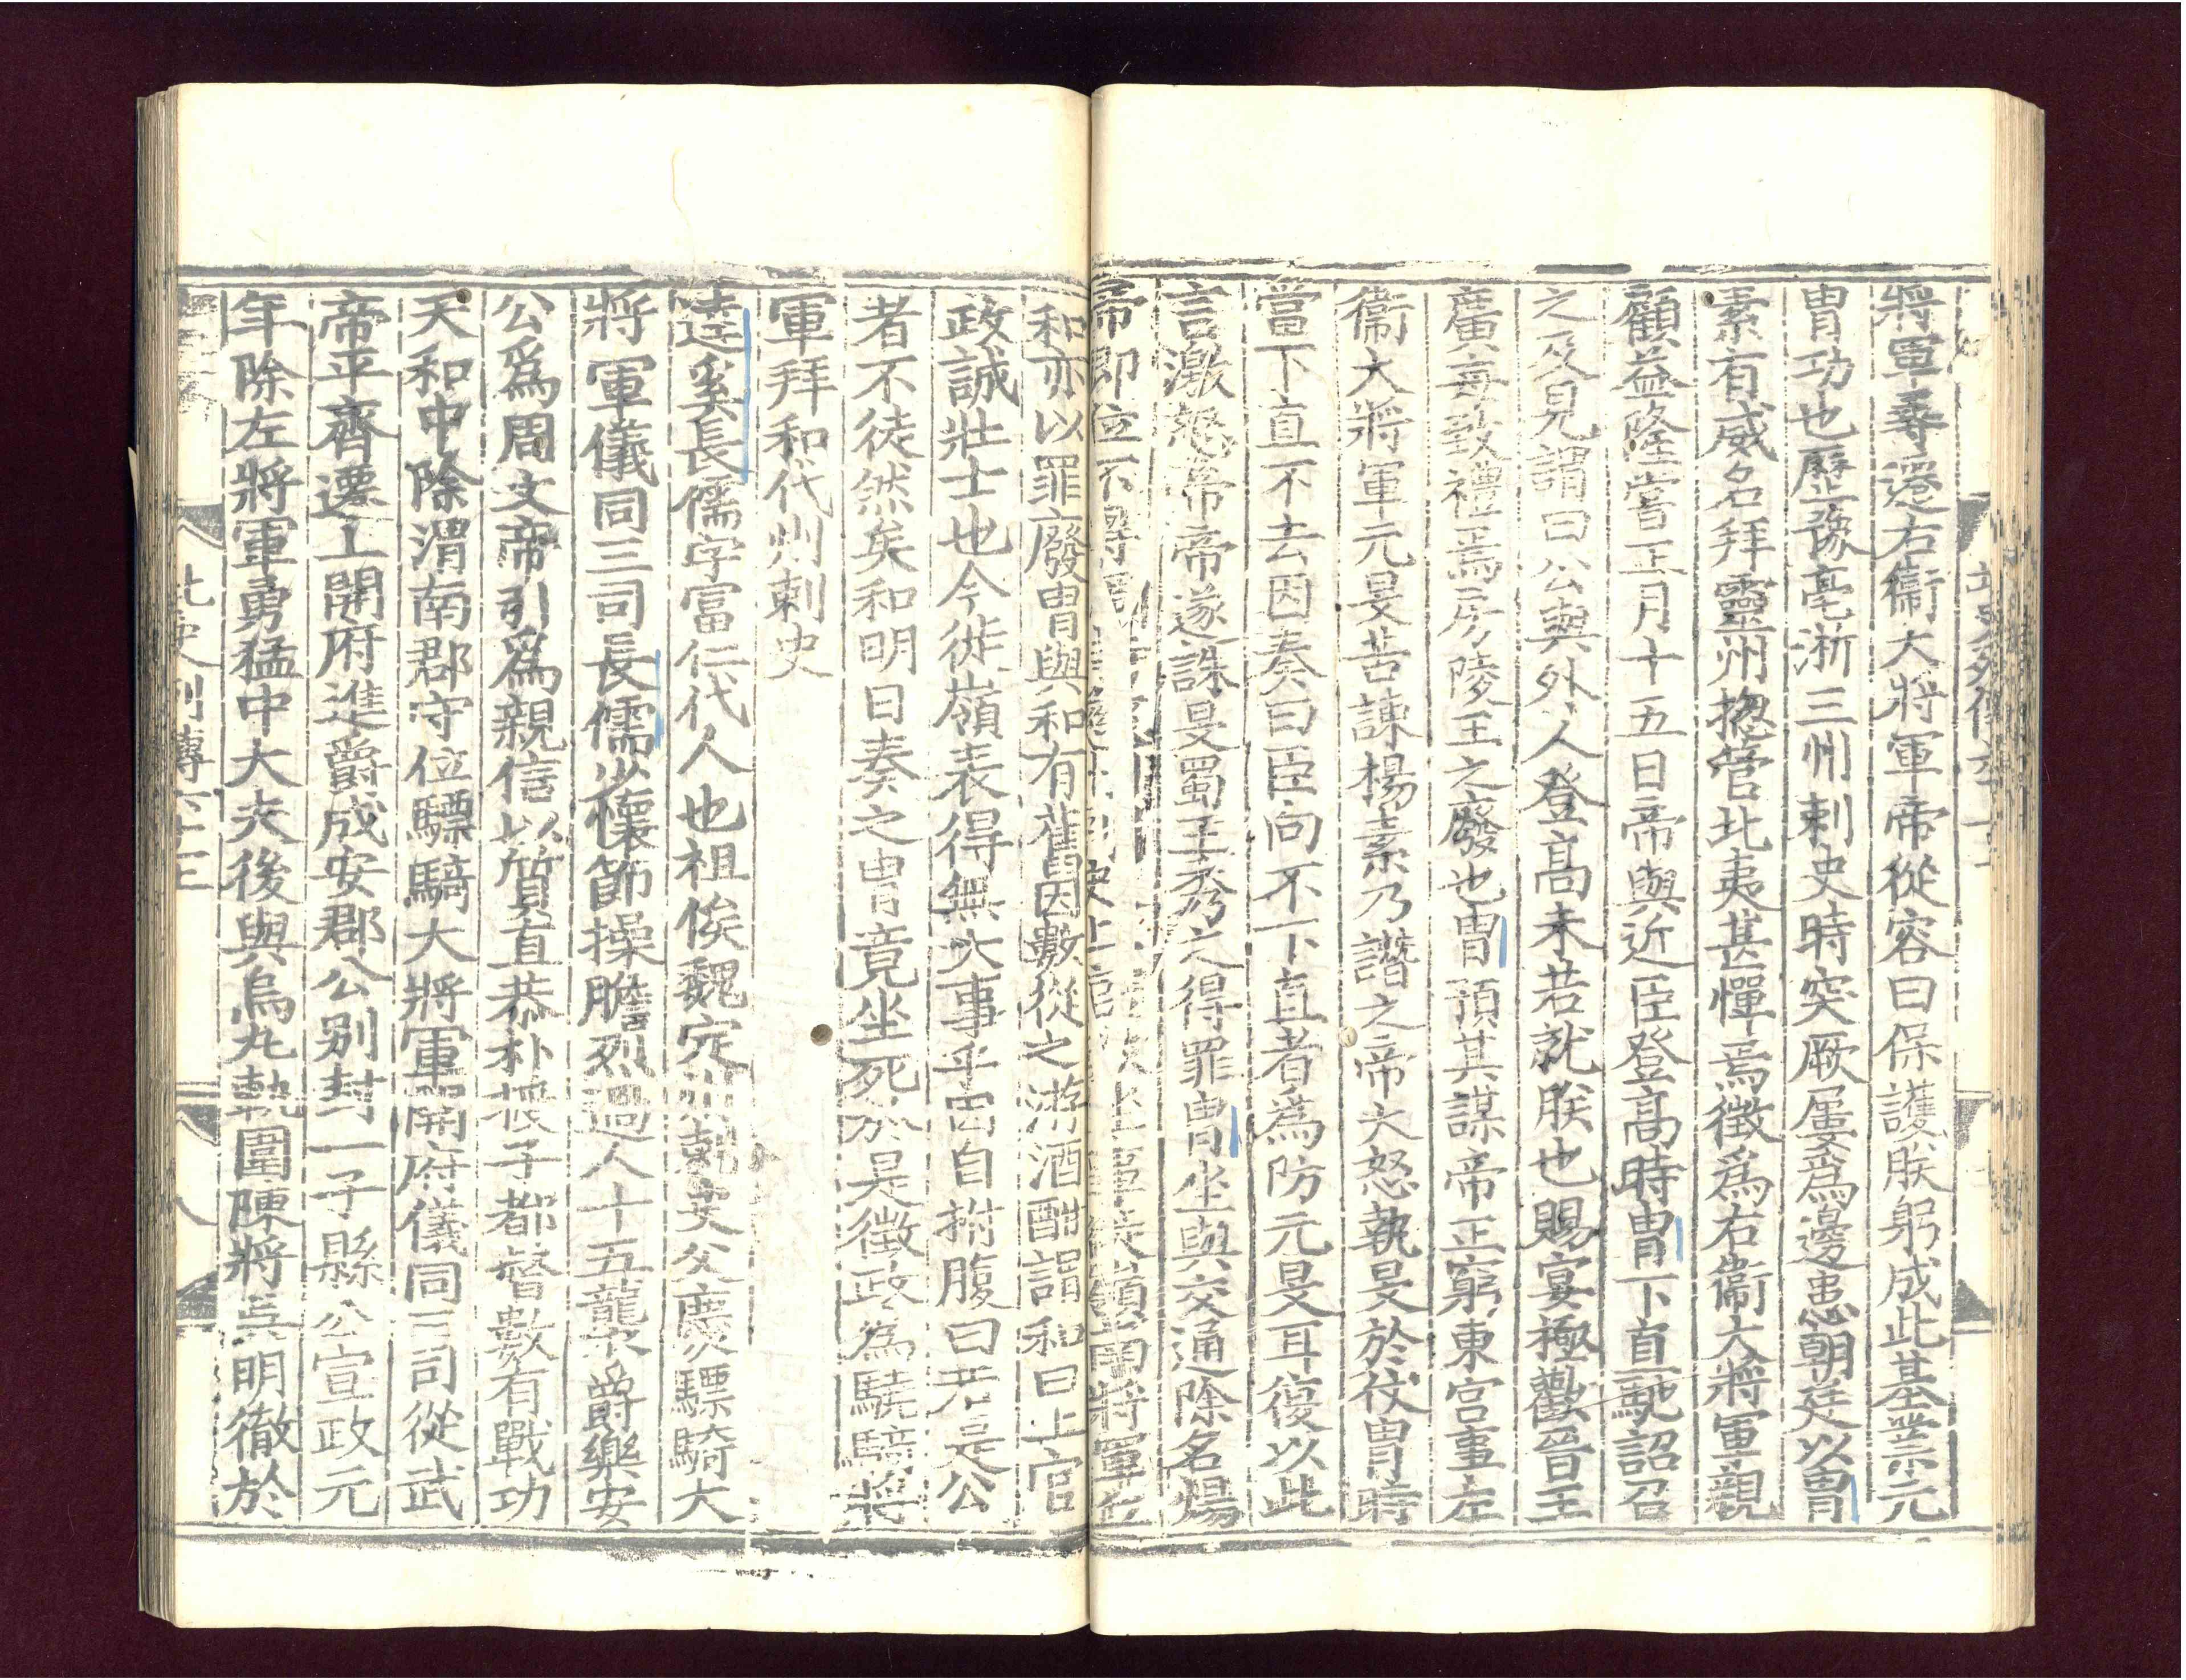 將軍尋遷右衞大將軍帝從容曰保護朕躬成此基業元
冑功也歷豫亳浙三州刺史時突厥屢爲邊患朝廷以冑
素有威名拜靈州揔管北夷甚憚焉徵爲右衞大將軍親
顧益隆嘗正月十五日帝與近臣登高時冑下直馳詔召
之及見謂曰公與外人登高未若就朕也賜宴極歡晉王
廣每致禮焉房陵王之廢也冑預其謀帝正窮東宫事左
衞大將軍元旻苦諫楊素乃譖之帝大怒執旻於仗冑時
當下直不去因奏曰臣向不下直者爲防元旻耳復以此
言激怒帝帝遂誅旻蜀王秀之得罪冑坐與交通除名煬
帝即位不得調
和亦以罪廢冑與和有舊因數從之游酒酣謂和曰上官
政誠壯士也今徙嶺表得無大事乎因自拊腹曰若是公
者不徒然矣和明日奏之冑竟坐死於是徵政爲驍騎將
軍拜和代州刺史
逹奚長儒字富仁代人也祖俟魏定州刺史父慶驃騎大
將軍儀同三司長儒少懷節操膽烈過人十五襲爵樂安
公爲周文帝引爲親信以質直恭朴授子都督數有戰功
天和中除渭南郡守位驃騎大將軍開府儀同三司從武
帝平齊遷上開府進爵成安郡公别封一子縣公宣政元
年除左將軍勇猛中大夫後與烏丸軌圍陳將吳明徹於
北史列傳六十三
八